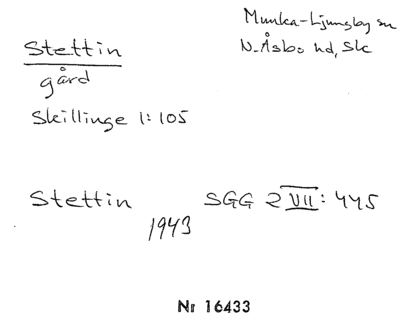 Munka-Ljungby sn
N. Åsbo hd, Sk
Stettin
gård
Skillinge 1:105
Stettin SGG 2 VII: 445
1943
Nr 16433